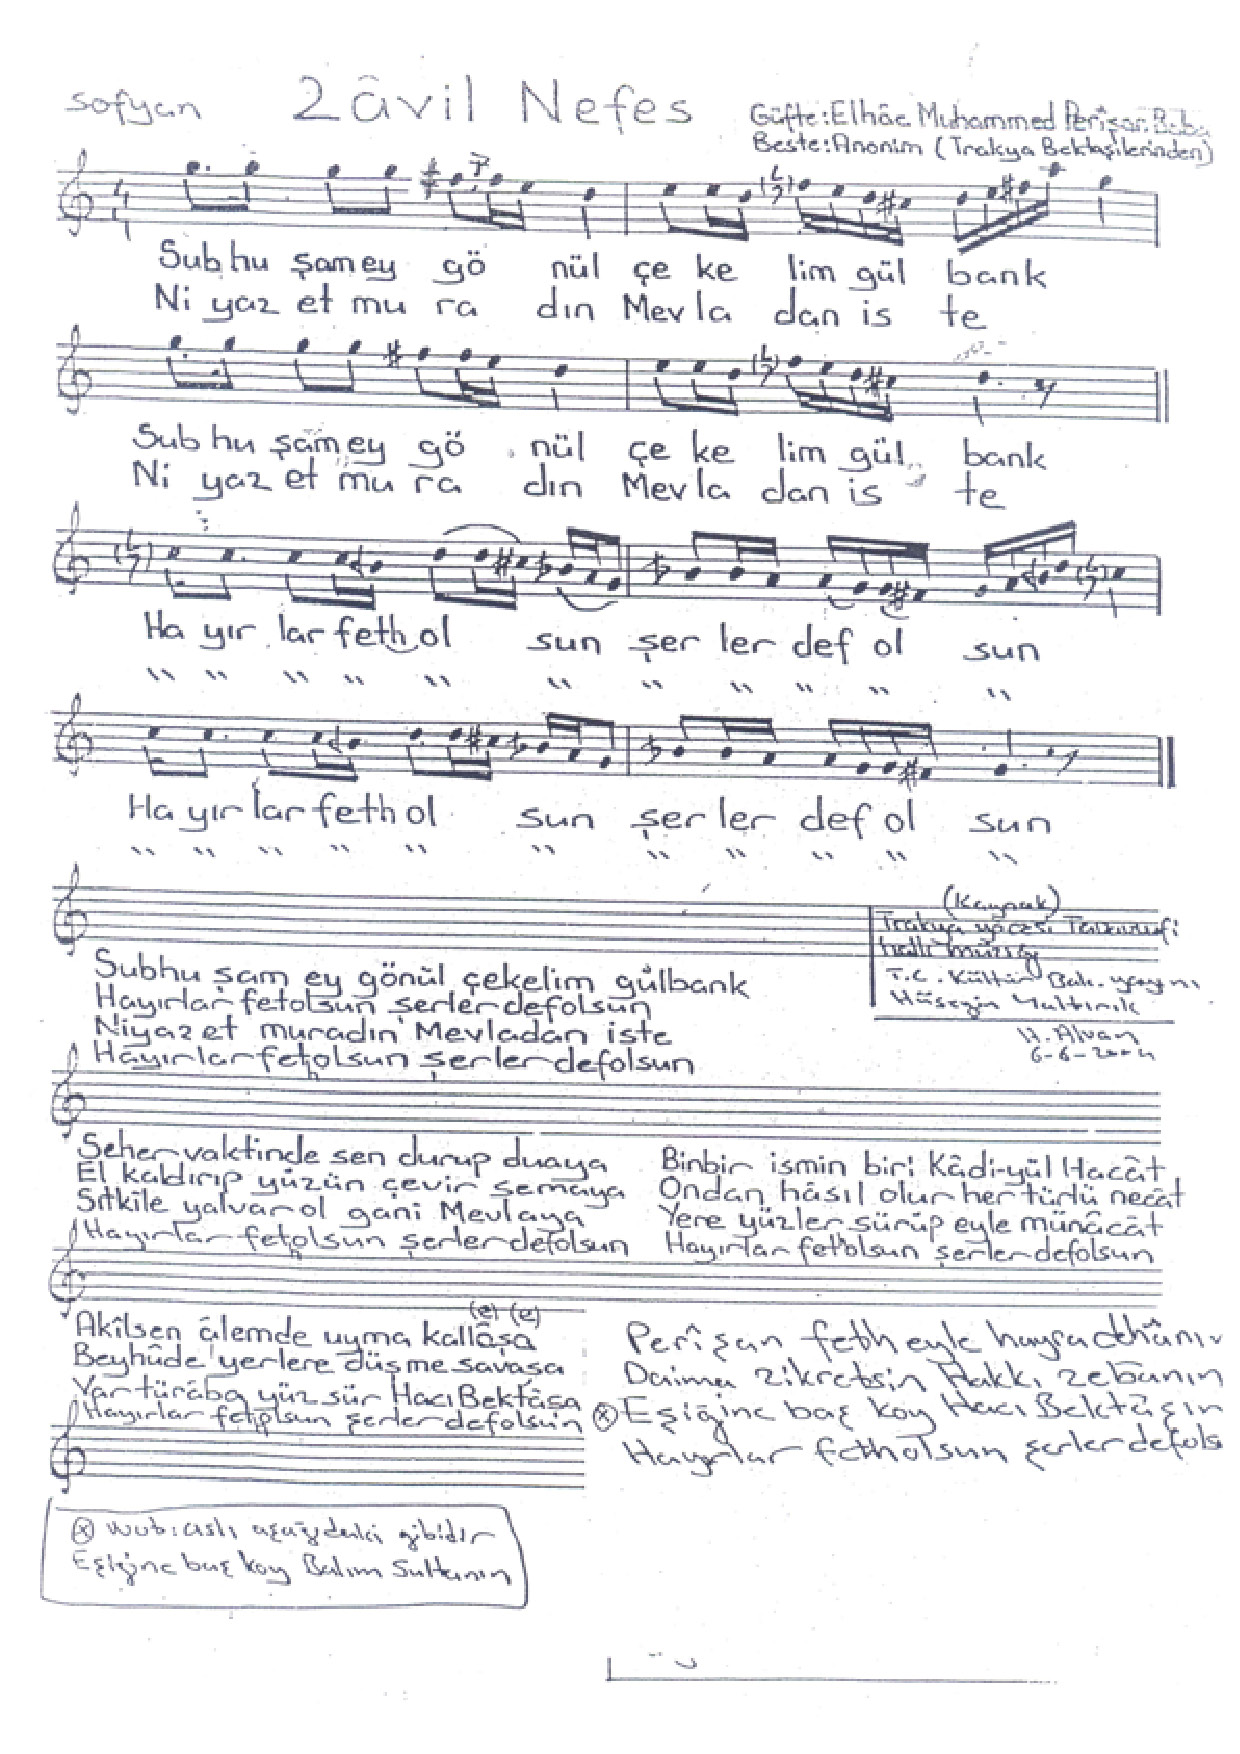 sofyan
Zâvil Nefes
Güfte: Elhâc Muhammed Perîşan Baba
Beste: Anonim (Trakya Bektaşilerinden)
Subhu şamey gö nül çe ke lim gül bank
Ni yaz et mu ra dın Mev la dan is te
Subhu şamey gö nül çe ke lim gül bank
Ni yaz et mu ra dın Mev la dan is te
Ha yır lar feth ol sun şer ler def ol sun
" " " " " " " " " " "
Ha yır lar feth ol sun şer ler def ol sun
" " " " " " " " " " "
(Kaynak)
Trakya yöresi Tasavvufi
halk müziği
T.C. Kültür Bak. yayını
Hüseyin Yaltırık
H. Alvan
6-6-2004
Subhu şam ey gönül çekelim gülbank
Hayırlar fetolsun şerler defolsun
Niyaz et muradın Mevladan iste
Hayırlar fetholsun şerler defolsun
Seher vaktinde sen durup duaya
El kaldırıp yüzün çevir semaya
Sıtkile yalvar ol gani Mevlaya
Hayırlar fetholsun şerler defolsun
Binbir ismin biri Kâdi-yül Hacât
Ondan hâsıl olur her türlü necât
Yere yüzler sürüp eyle münâcât
Hayırlar fetholsun şerler defolsun
(e) (e)
Akîlsen âlemde uyma kallâşa
Beyhûde yerlere düşme savaşa
Var türâba yüz sür Hacı Bektâşa
Hayırlar fetholsun şerler defolsun
Perîşan feth eyle hayra
Daima zikretsin Hakkı zebânın
ⓧ Eşiğine baş koy Hacı Bektâşın
Hayırlar fetholsun şerler defols
ⓧ aslı aşağıdaki gibidir
Eşiğine baş koy Balım Sultanın